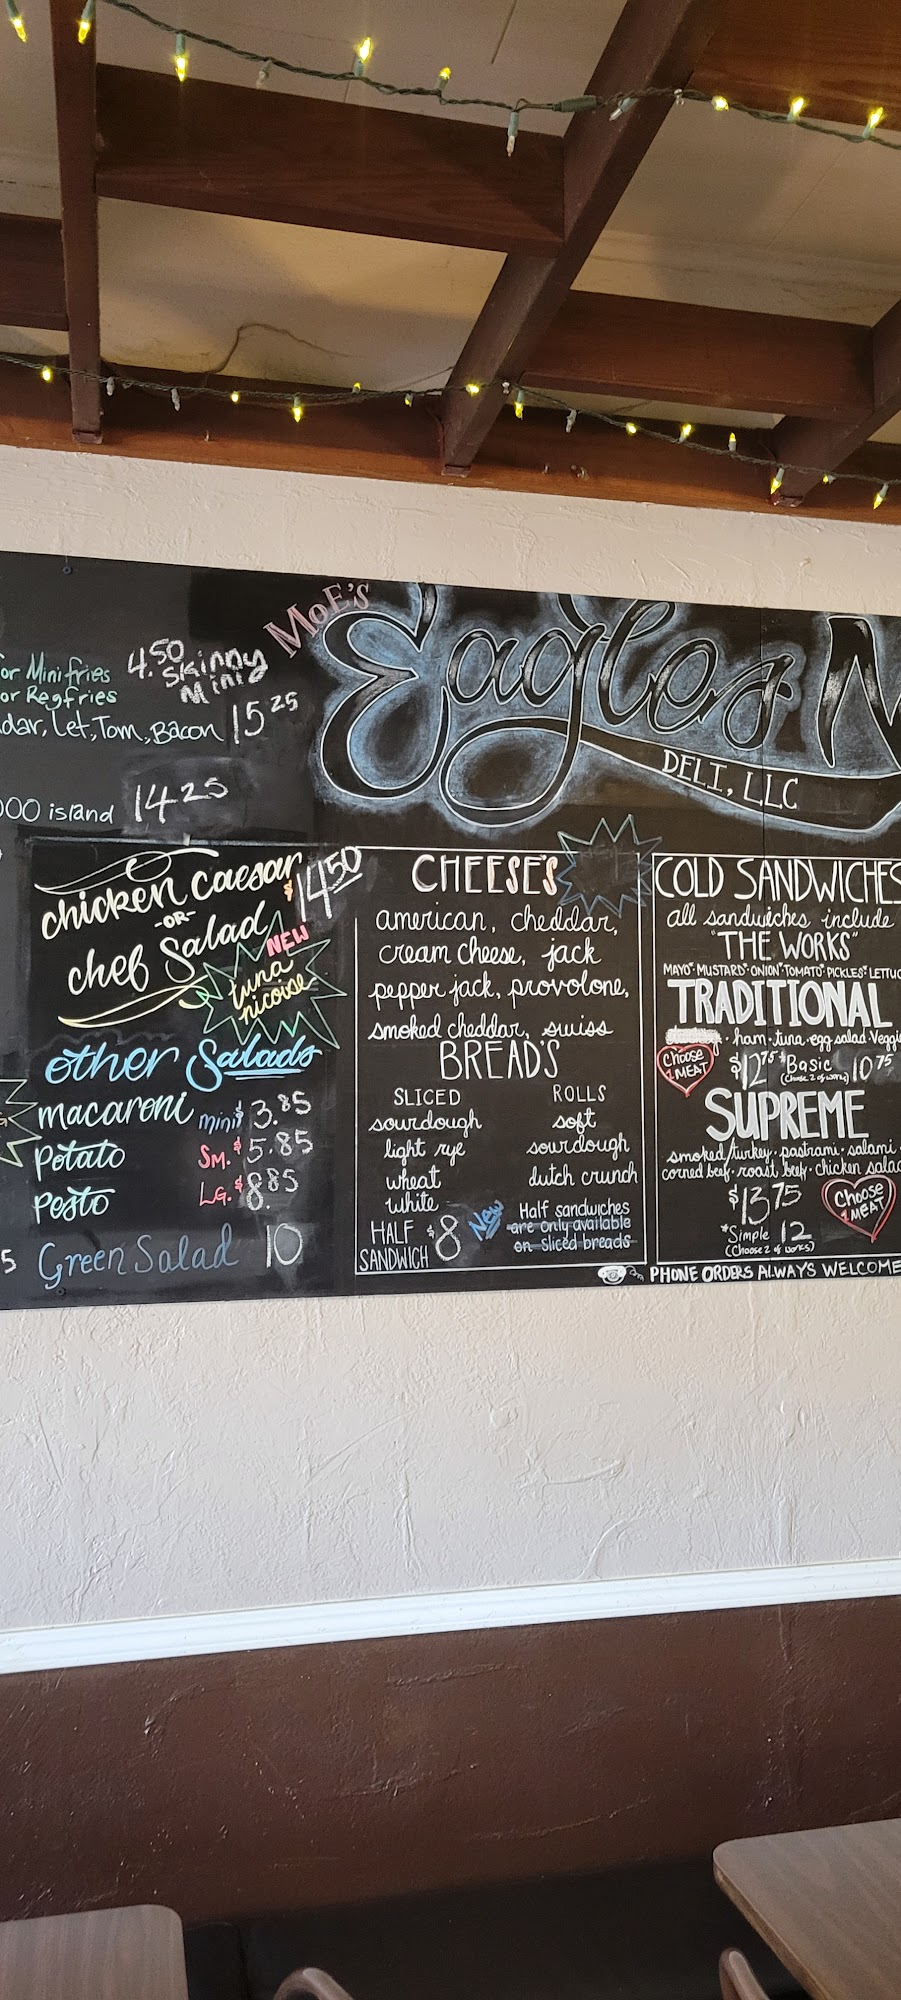 MOE'S
Eagles
DELI, LLC
or Minifries 4.50 Skinny Minis
or Regfries
dar, Let, Tom, Bacon 15 25
000 island 14 25
chicken caesar
-OR-
chef Salad
$14 50
NEW
tuna
nicoise
other Salads
macaroni mini $3.85
Potato Sm. $5.85
Pesto LG. $8.85
5 Green Salad 10
CHEESE'S
american, cheddar,
cream cheese, jack
pepper jack, provolone,
smoked cheddar, swiss
BREAD'S
SLICED
sourdough
light rye
wheat
white
ROLLS
soft
sourdough
dutch crunch
HALF
SANDWICH $8
New
Half sandwiches
are only available
on Sliced breads
COLD SANDWICHES
all sandwiches include
"THE WORKS"
MAYO • MUSTARD • ONION • TOMATO • PICKLES • LETTUC
TRADITIONAL
• ham • tuna • egg salad Veggi
Choose
1 MEAT
$12 75 *Basic 10 75
(Choose 2 of works)
SUPREME
smoked turkey • pastrami • salami •
corned beef • roast beef • chicken salad
$13 75
Choose
1 MEAT
*Simple 12
(Choose 2 of works)
PHONE ORDERS ALWAYS WELCOME